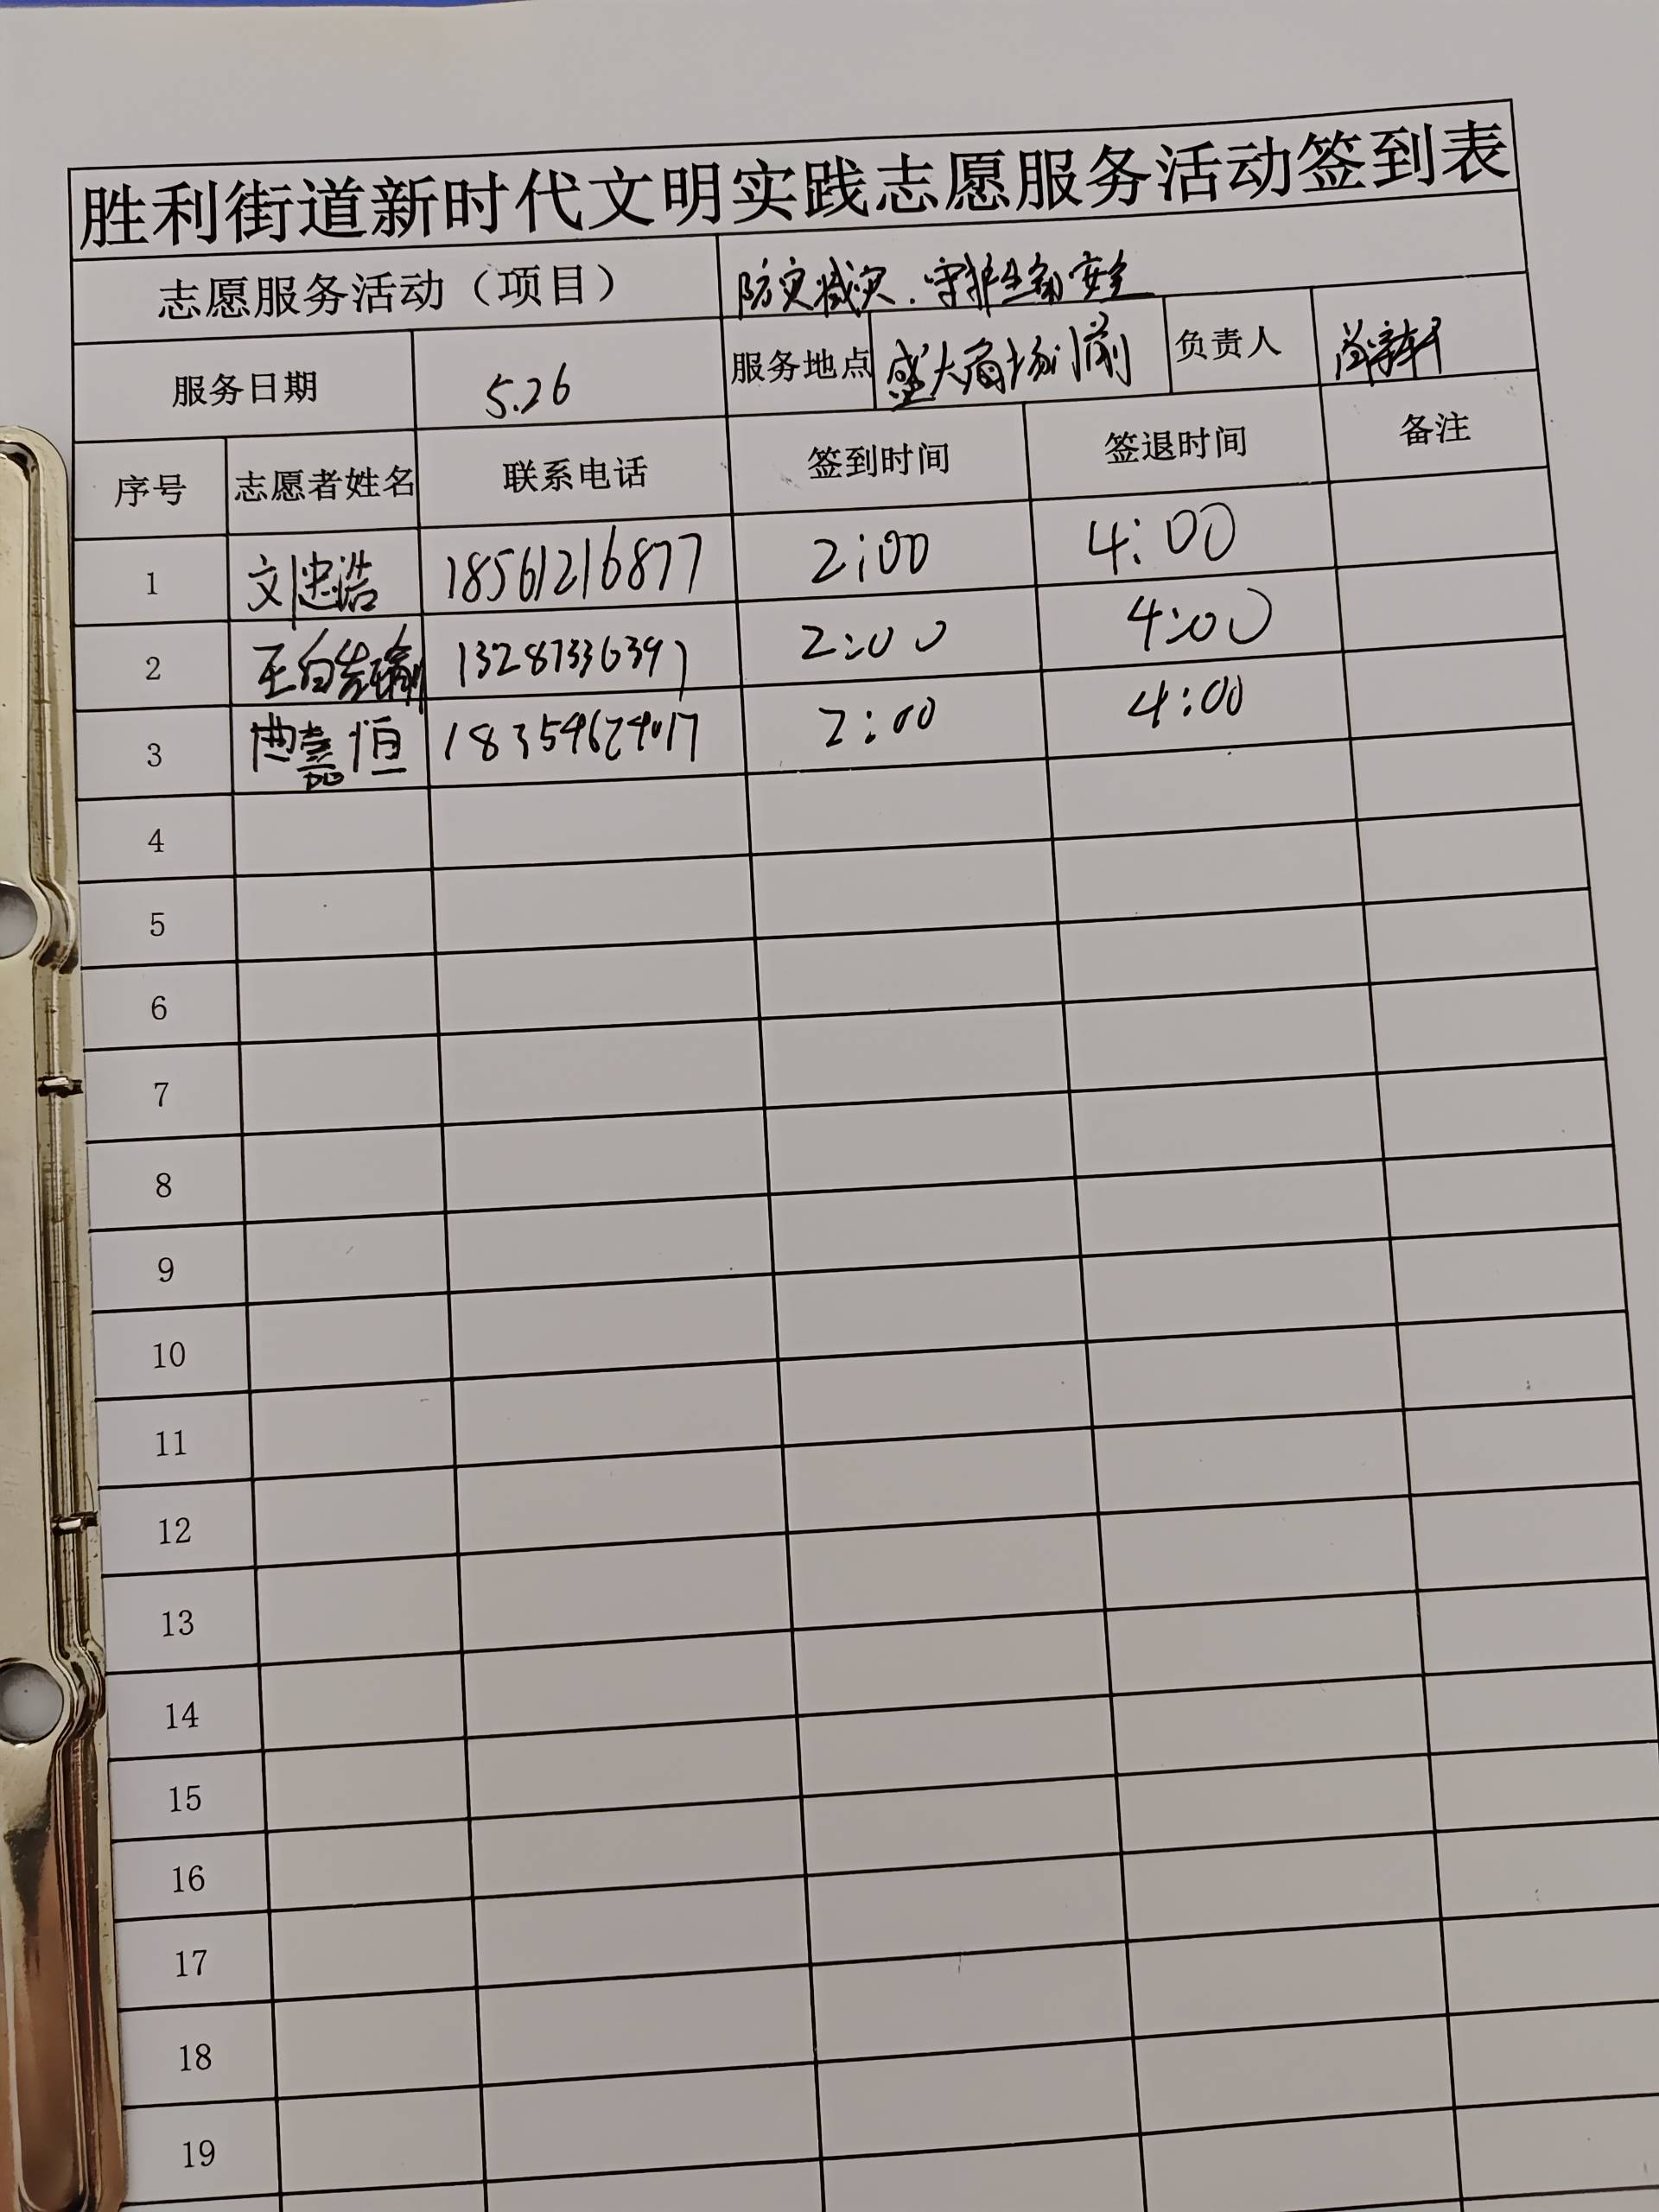 胜利街道新时代文明实践志愿服务活动签到表
志愿服务活动（项目） 防灾减灾.守护生命安全
服务日期 5.26 服务地点 盛大商场门前 负责人
序号 志愿者姓名 联系电话 签到时间 签退时间 备注
1 刘忠浩 18561216877 2:00 4:00
2 13287336397 2:00 4:00
3 曲嘉恒 2:00 4:00
4
5
6
7
8
9
10
11
12
13
14
15
16
17
18
19